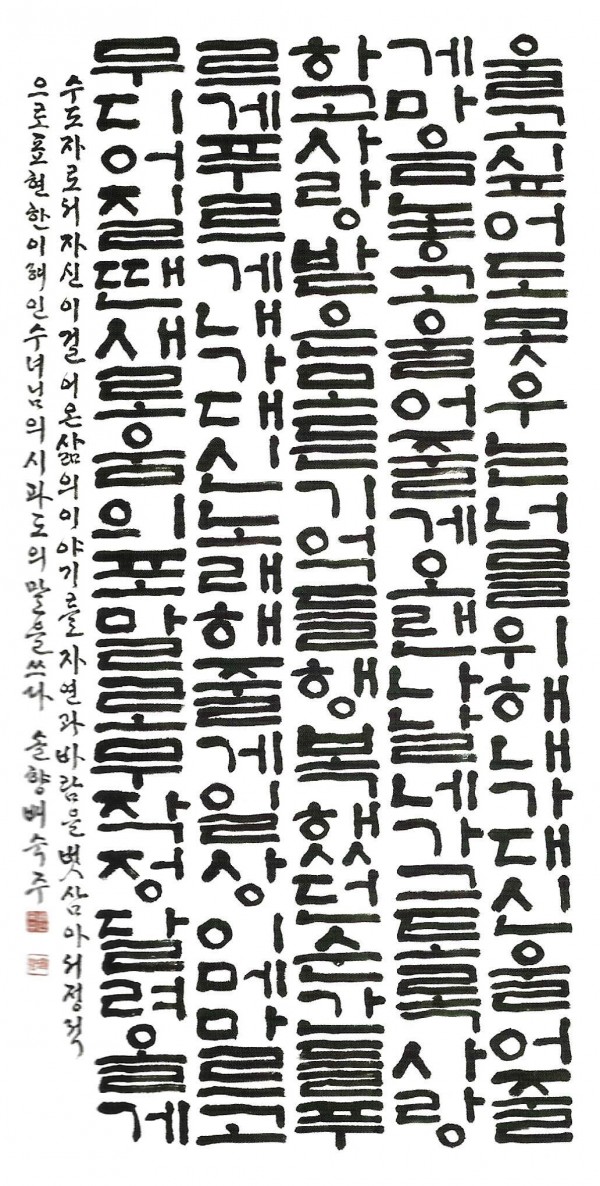 울고싶어도못우는너를위해내가대신울어줄
게마음놓고울어줄게오랜나날네가그토록사랑
하고사랑받은모든기억들행복했던순간들푸
르게푸르게내가대신노래해줄게일상이메마르고
무디어질땐새로움의포말로무작정달려올게
수도자로서자신이걸어온삶의이야기를자연과바람을벗삼아서정적
으로표현한이해인수녀님의시파도의말을쓰다 솔향배숙주